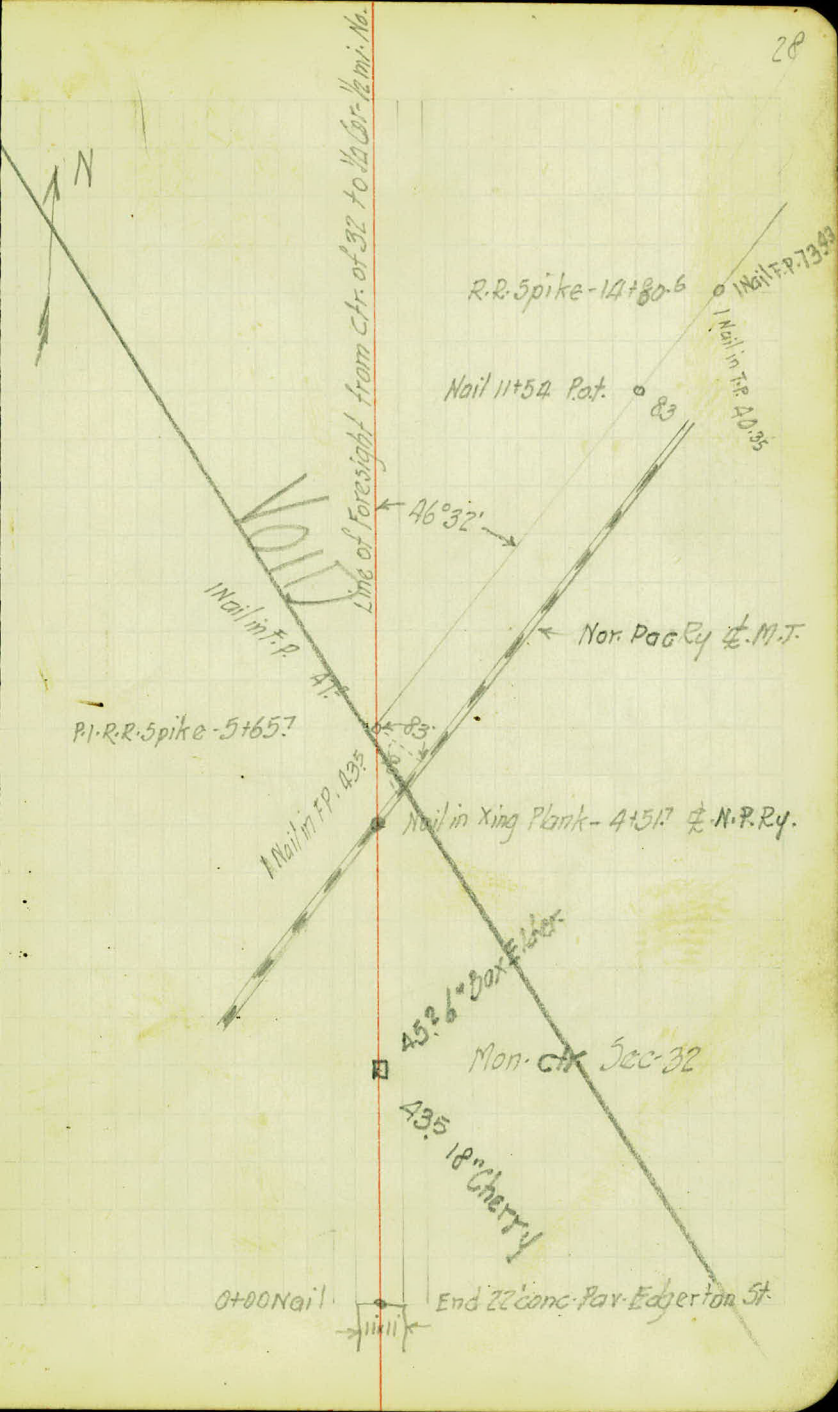 28
N
Line of Foresight from Ctr. of 32 to ¼ Cor-½ mi. No.
R.R. Spike-14+80.6
1 Nail F.P. 73.43
1 Nail in T.P. 40.35
Nail 11+54 P.o.t.
83
46°32'
VOID
1 Nail in F.P. 47.2
Nor. Pac Ry ℄. M.T.
P.I. R.R. Spike-5+65.7
83'
1 Nail in F.P. 43.5
Nail in Xing Plank-4+51.7 ℄. N.P. Ry.
45.2 6" Box Elder
Mon. Ctr Sec-32
43.5 18" Cherry
0+00 Nail
End 22' conc. Pav. Edgerton St.
11 11'